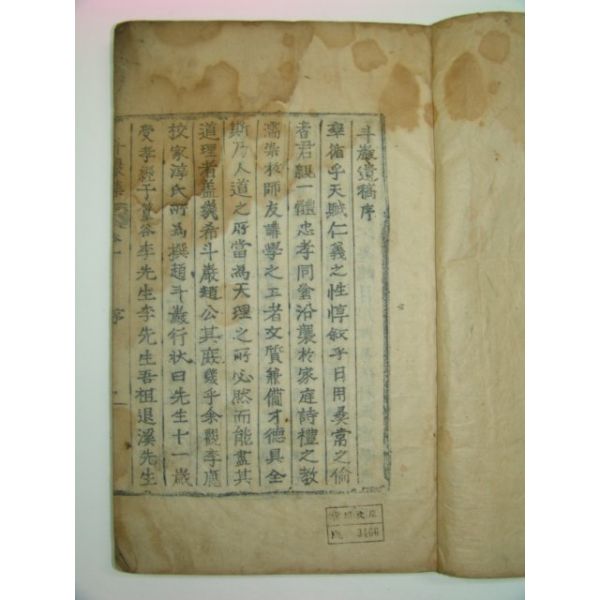 斗巖遺稿序
率循乎天賦仁義之性惇敍乎日用彝常之倫
者君親一體忠孝同**沿襲於家庭詩禮之教
濡染於師友講學之工者文質兼備才德具全
斯乃人道之所當為天理之所必然而能盡其
道理者盖幾希斗巖趙公其庶幾乎余觀李應
校家淳氏所為撰趙斗巖行狀曰先生十一歲
受孝經于簹谷李先生李先生吾祖退溪先生
斗巖集 卷一 序
3466